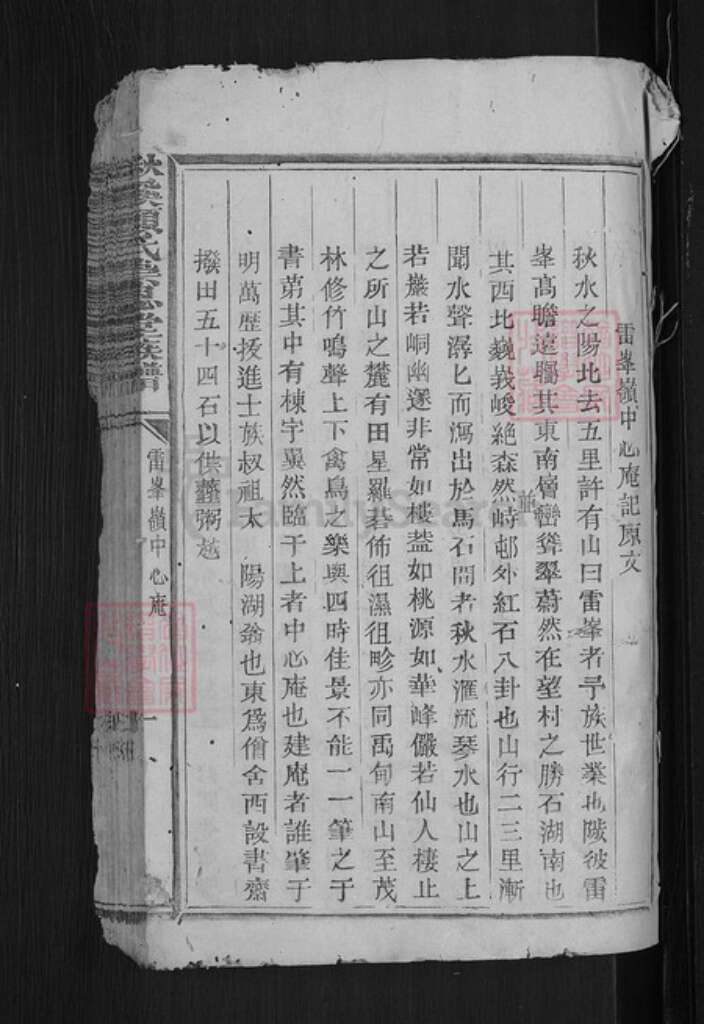 雷峯嶺中心庵記原文
秋水之陽北去五里許有山曰雷峯者予族世業也陟彼雷
峯髙瞻遠矚其東南層巒聳翠蔚然在望村之勝石湖南也
其西北巍峩峻絶森然峙邨外紅石八卦也山行二三里漸
聞水聲潺匕而瀉出於馬石間者秋水滙琴水也山之上
若巖若峒幽邃非常如樓葢如桃源如華峰儼若仙人棲止
之所山之麓有田星羅碁佈徂濕徂畛亦同禹甸南山至茂
林修竹鳴聲上下禽鳥之樂與四時佳景不能一一筆之于
書第其中有棟宇翼然臨于上者中心庵也建庵者誰肇于
明萬歴授進士族叔祖太 陽湖翁也東爲僧舍西設書齋
撥田五十四石以供虀粥越
秋溪氏堂族譜
雷峯嶺中心庵
一